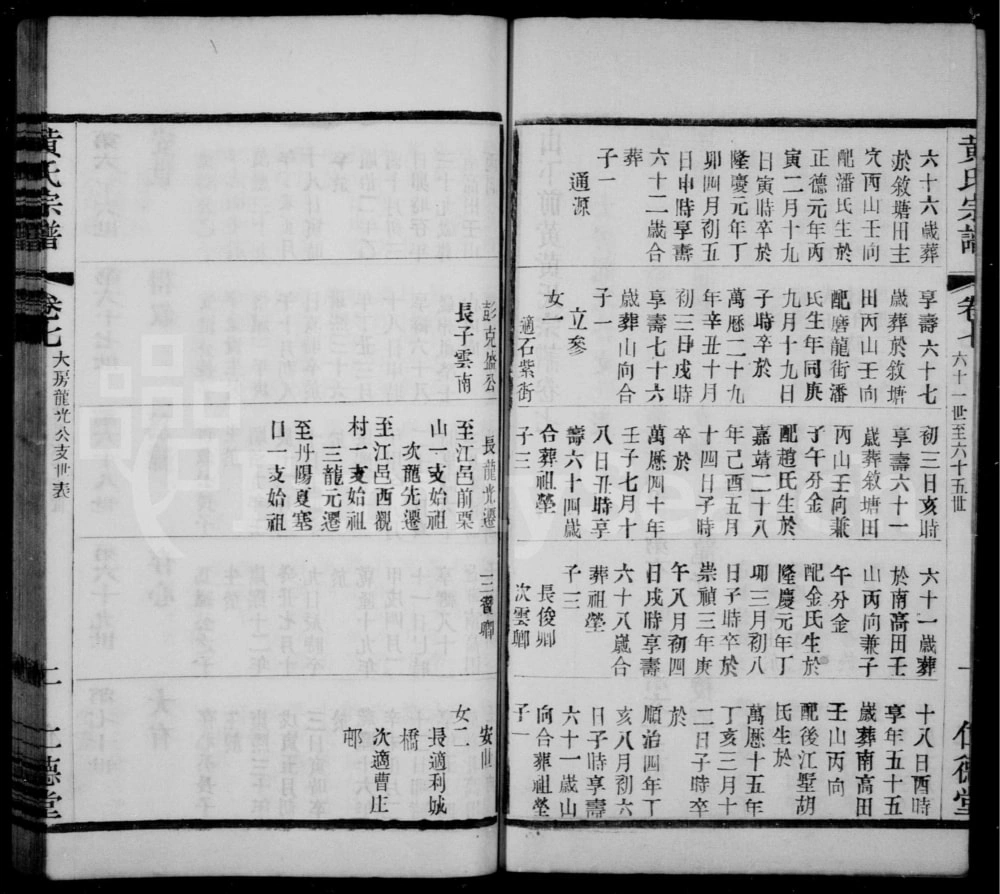 黃氏宗譜
卷七
六十一世至六十五世
一
仁德堂
六十六歲葬
於敘塘田主
穴丙山壬向
配潘氏生於
正德元年丙
寅二月十九
日寅時卒於
隆慶元年丁
卯四月初五
日申時享壽
六十二歲合
葬
子一
通源
享壽六十七
歲葬於敘塘
田丙山壬向
配磨龍街潘
氏生年同庚
九月十九日
子時卒於
萬厯二十九
年辛丑十月
初三日戌時
享壽七十六
歲葬山向合
子一
立參
女一
適石紫街
初三日亥時
享壽六十一
歲葬敘塘田
丙山壬向兼
子午分金
配趙氏生於
嘉靖二十八
年己酉五月
十四日子時
卒於
萬厯四十年
壬子七月十
八日丑時享
壽六十四歲
合葬祖塋
子三
六十一歲葬
於南高田壬
山丙向兼子
午分金
配金氏生於
隆慶元年丁
卯三月初八
日子時卒於
崇禎三年庚
午八月初四
日戌時享壽
六十八歲合
葬祖塋
子三
長俊卿
次雲卿
十八日酉時
享年五十五
歲葬南高田
壬山丙向
配後江墅胡
氏生於
萬厯十五年
丁亥三月十
一日子時卒
於
順治四年丁
亥八月初六
日子時享壽
六十一歲山
向合葬祖塋
子一
彭克盛公
長子雲南
長龍光遷
至江邑前栗
山一支始祖
次龍先遷
至江邑西觀
村一支始祖
三龍元遷
至丹陽夏塞
口一支始祖
三賀卿
安世
女二
長適利城
橋
次適曹庄
邨
黃氏宗譜
卷七
大房龍光公支世表
二
仁德堂